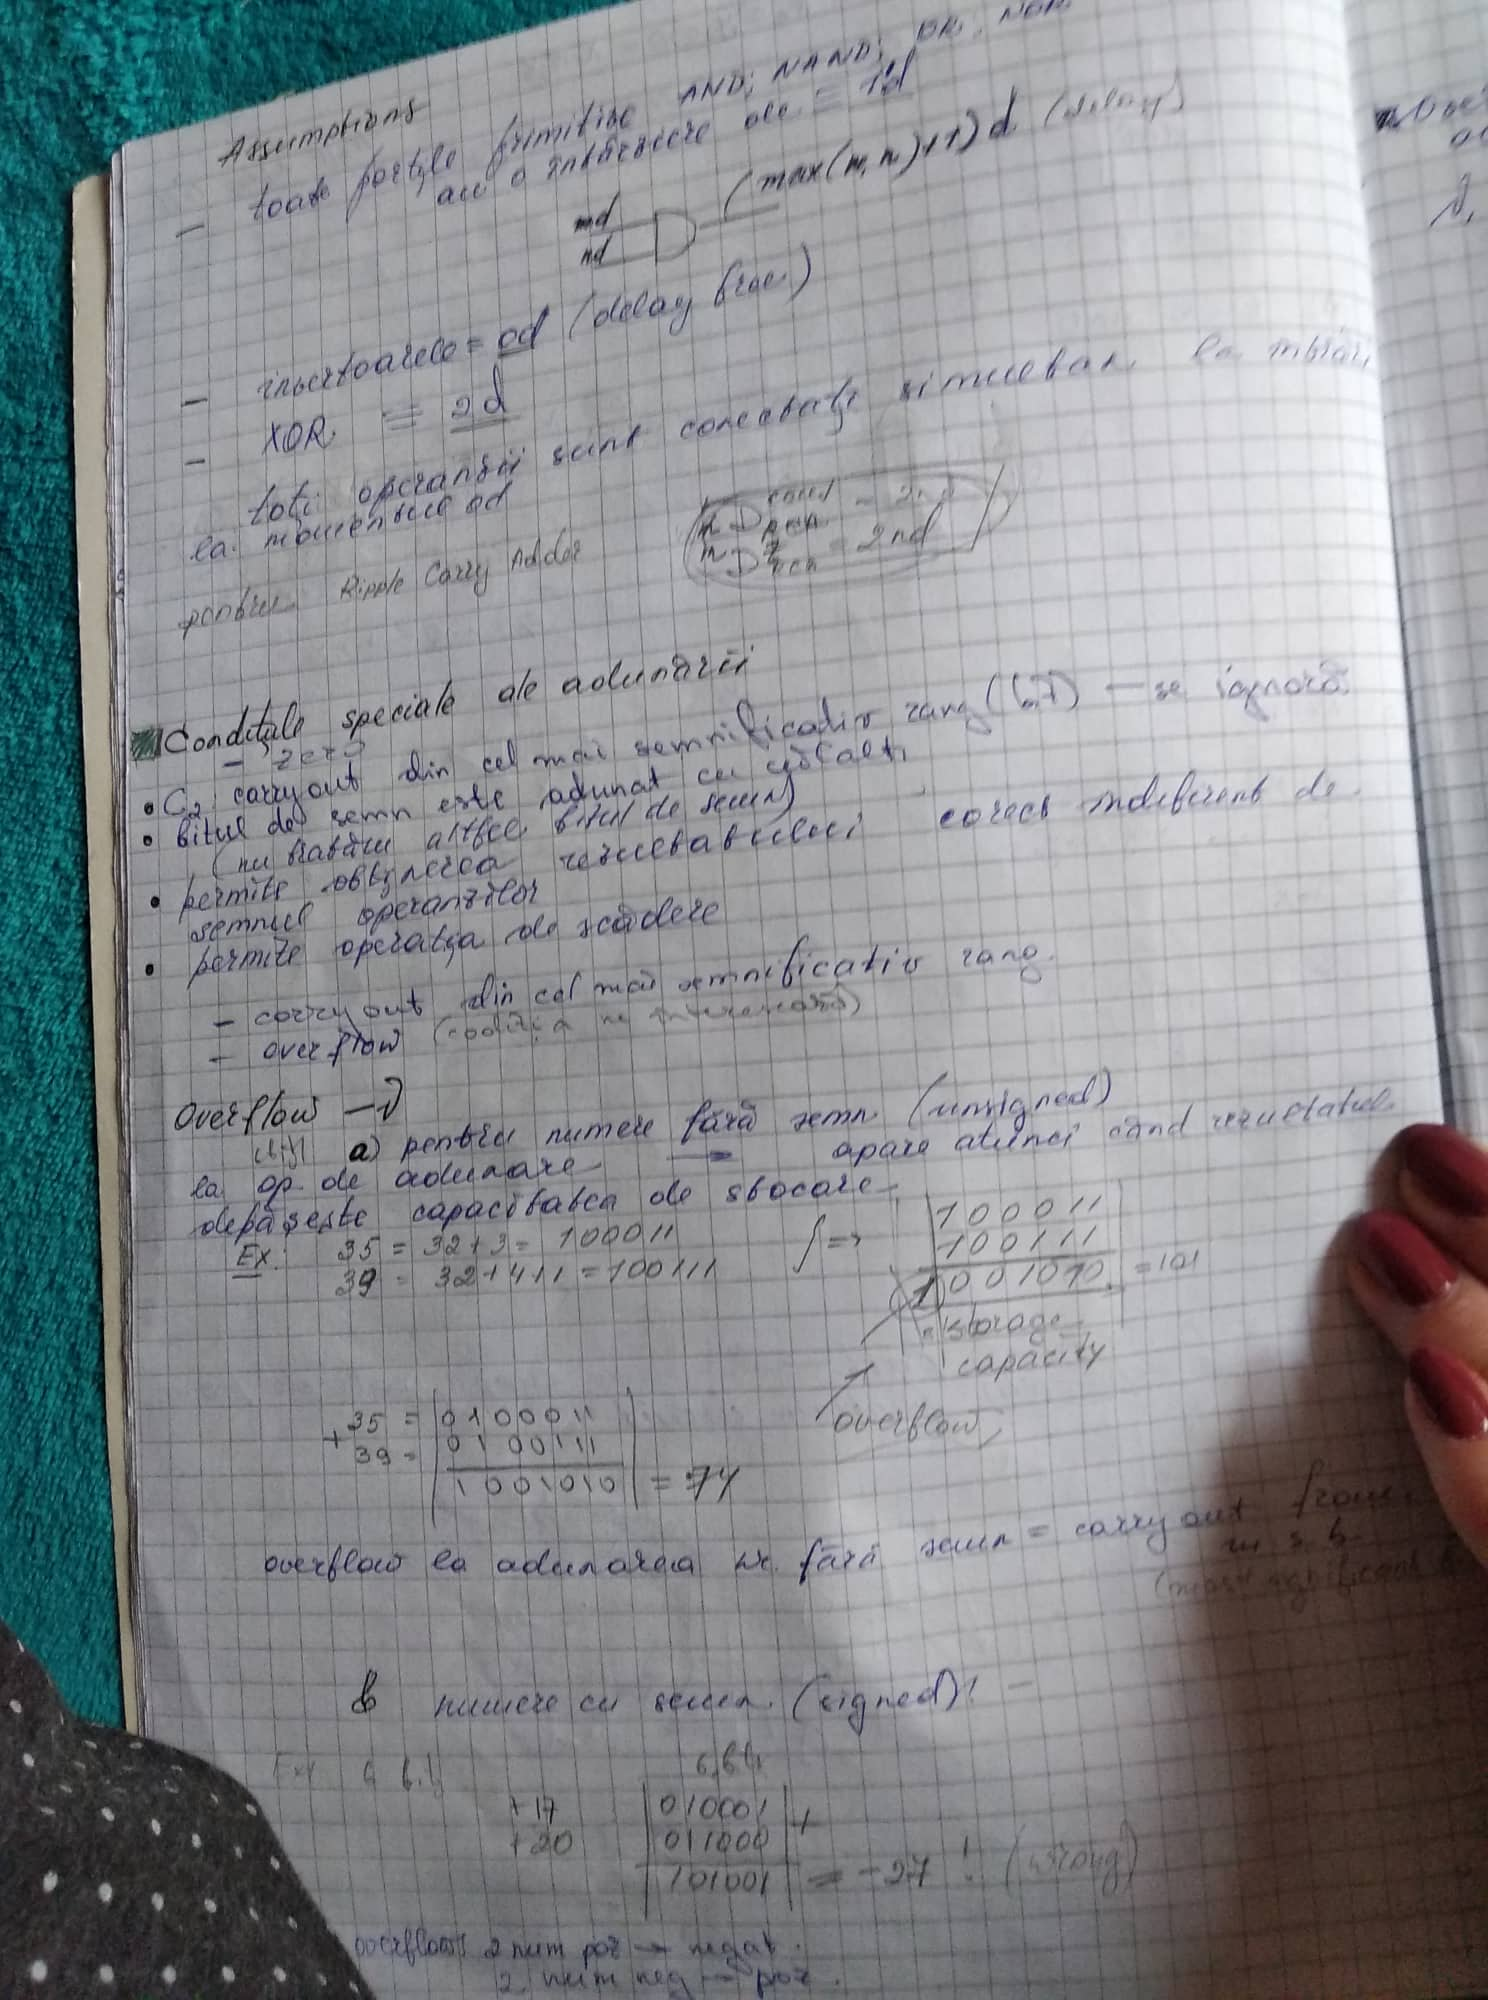 Assumptions
- toate porțile primitive AND; NAND; OR, NOR
au o întârziere de = 1d
md
nd
(max(m,n)+1)d (delay)
- inversoarele = 0d (delay free)
- XOR = 2d
toți operanzii sunt conectați simultan la intrări
la momentul 0d
pentru Ripple Carry Adder
= 2nd
Condițiile speciale ale adunării
- zero
• C2: carryout din cel mai semnificativ rang (b7) - se ignoră
• bitul de semn este adunat cu ceilalți
(nu tratăm altfel bitul de semn)
• permite obținerea rezultatului corect indiferent de
semnul operanzilor
• permite operația de scădere
- carryout din cel mai semnificativ rang.
- overflow
Overflow →
a) pentru numere fără semn (unsigned)
la op. de adunare apare atunci când rezultatul
depășește capacitatea de stocare
Ex: 35 = 32+3 = 100011
39 = 32+4+1 = 100111
=>
100011
100111
1001010
storage
capacity
overflow
+35 = 0100011
39 = 0100111
1001010 = 74
overflow la adunarea nr. fără semn = carry out from
m s b
(most significant
b numere cu semn (signed):
6 biți
+17 010001 +
+20 011000
101001 = -27 ! (wrong)
overflow: 2 num poz → negat.
2 num neg → poz.